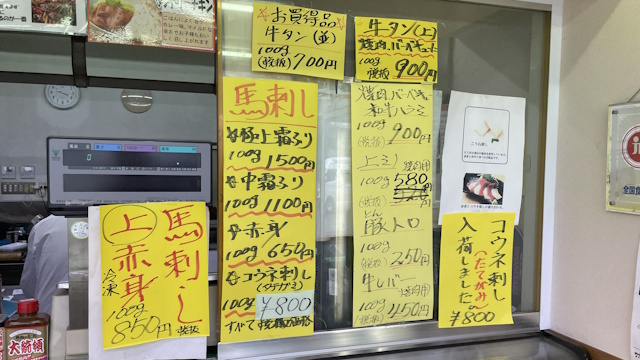 お買得品
牛タン(並)
100g
(税抜)700円
牛タン(上)
焼肉、バーベキュー
100g
(税抜)900円
馬刺し
極上霜ふり
100g 1500円
中霜ふり
100g 1100円
赤身
100g 650円
コウネ刺し
(タテガミ)
100g ¥800
すべて税抜価格
焼肉バーベキュー
和牛ハラミ
100g
(税抜)900円
上ミノ 焼肉用
100g 580円
(税抜)
豚トロ
100g
(税抜)250円
牛レバー 焼肉用
100g
(税抜)450円
こうね刺し
コウネ刺し
(たてがみ)
入荷しました。
¥800
馬刺し
上 赤身
冷凍
100g
850円 税抜
大蒜領
全国食